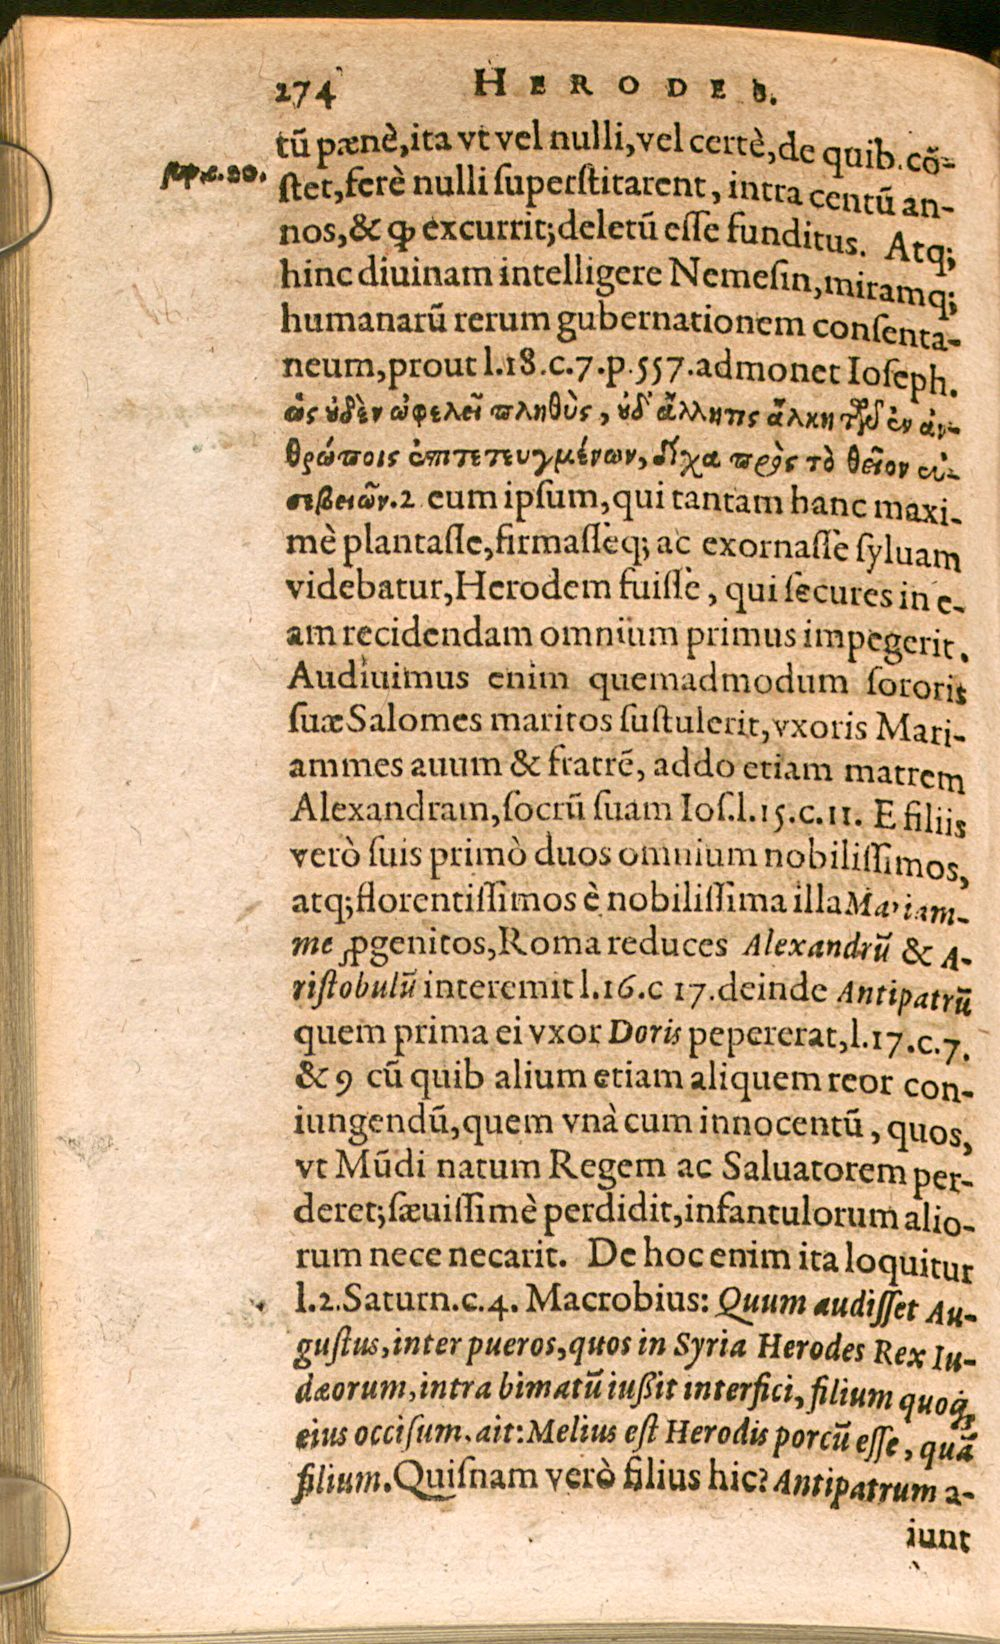 274 HERODES.
tũ pænè, ita vt vel nulli, vel certè, de quib. cõ-
sup. c. 20.
ſtet, ferè nulli ſuperſtitarent, intra centũ an-
nos, & ꝙ excurrit; deletũ eſſe funditus. Atq;
hinc diuinam intelligere Nemeſin, miramq;
humanarũ rerum gubernationem conſenta-
neum, prout l.18.c.7.p.557. admonet Ioſeph.
ὡς ὐδὲν ὠφελεῖ πληθὺς, ὐδ' ἄλλητις ἄλκη τῶ ἐν ἀν-
θρώποις ἐπιτετευγμένων, δίχα πρὸς τὸ θεῖον εὐ-
σεβειῶν. 2 eum ipſum, qui tantam hanc maxi-
mè plantaſſe, firmaſſeq; ac exornaſſe ſyluam
videbatur, Herodem fuiſſe, qui ſecures in e-
am recidendam omnium primus impegerit.
Audiuimus enim quemadmodum ſororis
ſuæ Salomes maritos ſuſtulerit, vxoris Mari-
ammes auum & fratrẽ, addo etiam matrem
Alexandram, ſocrũ ſuam Ioſ.l.15.c.11. E filiis
verò ſuis primò duos omnium nobiliſſimos,
atq; florentiſſimos è nobiliſſima illa Mariam-
me ꝓgenitos, Roma reduces Alexandrũ & A-
riſtobulũ interemit l.16.c 17. deinde Antipatrũ
quem prima ei vxor Doris pepererat, l.17.c.7.
& 9 cũ quib alium etiam aliquem reor con-
iungendũ, quem vnà cum innocentũ, quos,
vt Mũdi natum Regem ac Saluatorem per-
deret; ſæuiſſimè perdidit, infantulorum alio-
rum nece necarit. De hoc enim ita loquitur
l.2.Saturn.c.4. Macrobius: Quum audiſſet Au-
guſtus, inter pueros, quos in Syria Herodes Rex Iu-
dæorum, intra bimatũ iußit interfici, filium quoq;
eius occiſum. ait: Melius eſt Herodis porcũ eſſe, quã
filium. Quiſnam verò filius hic? Antipatrum a-
iunt